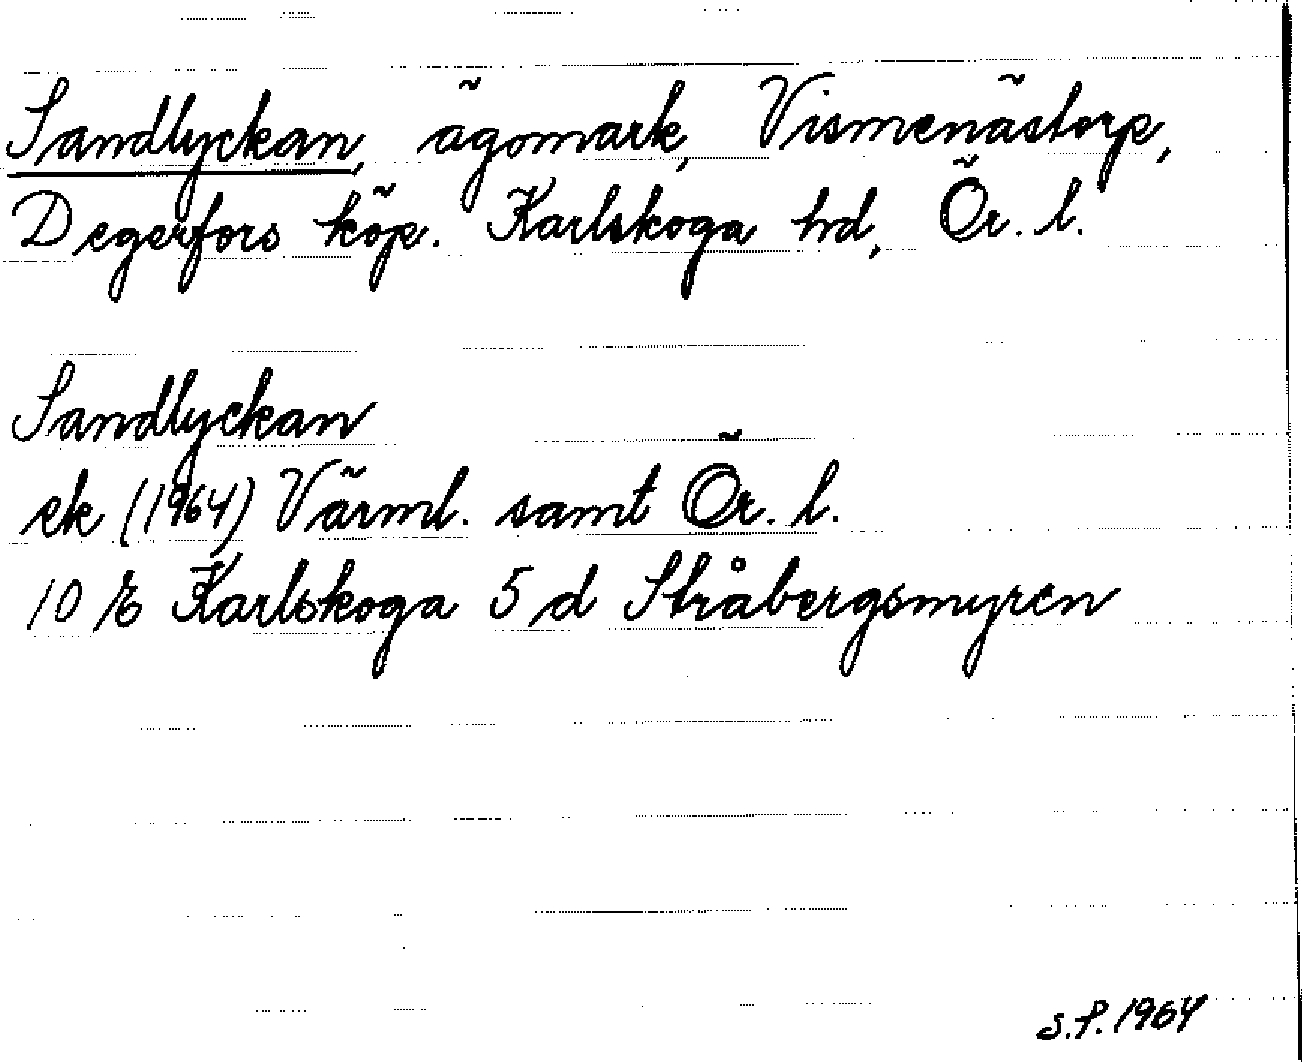 Sandlyckan, ägomark, Vismenästorp,
Degerfors köp. Karlskoga hd, Ör. l.
Sandlyckan
ek (1964) Värml. samt Ör. l.
10 E Karlskoga 5 d Stråbergsmyren
S.F. 1964